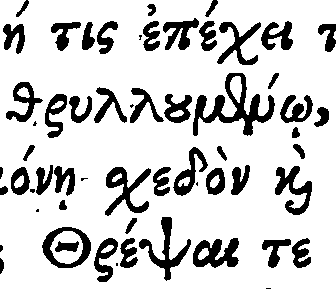 ή τις ἐπέχει τ
θρυλλουμένῳ,
όνῃ σχεδὸν ϗ̀
Θρέψαι τε